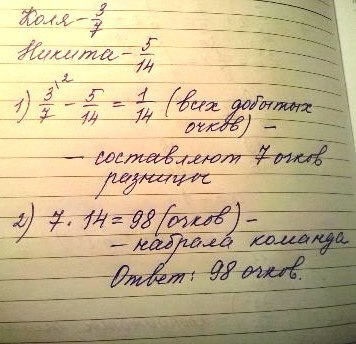 Коля - 3/7
Никита - 5/14
1) 3/7 \2 - 5/14 = 1/14 (всех добытых
очков) -
- составляют 7 очков
разницы
2) 7 · 14 = 98 (очков) -
- набрала команда
Ответ: 98 очков.